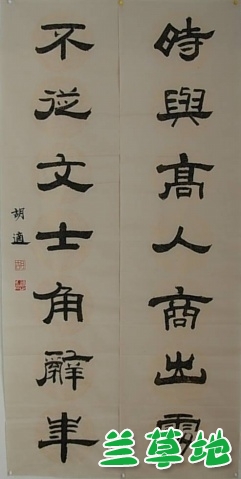 時與高人商出
不從文士角辭
胡適
兰草地